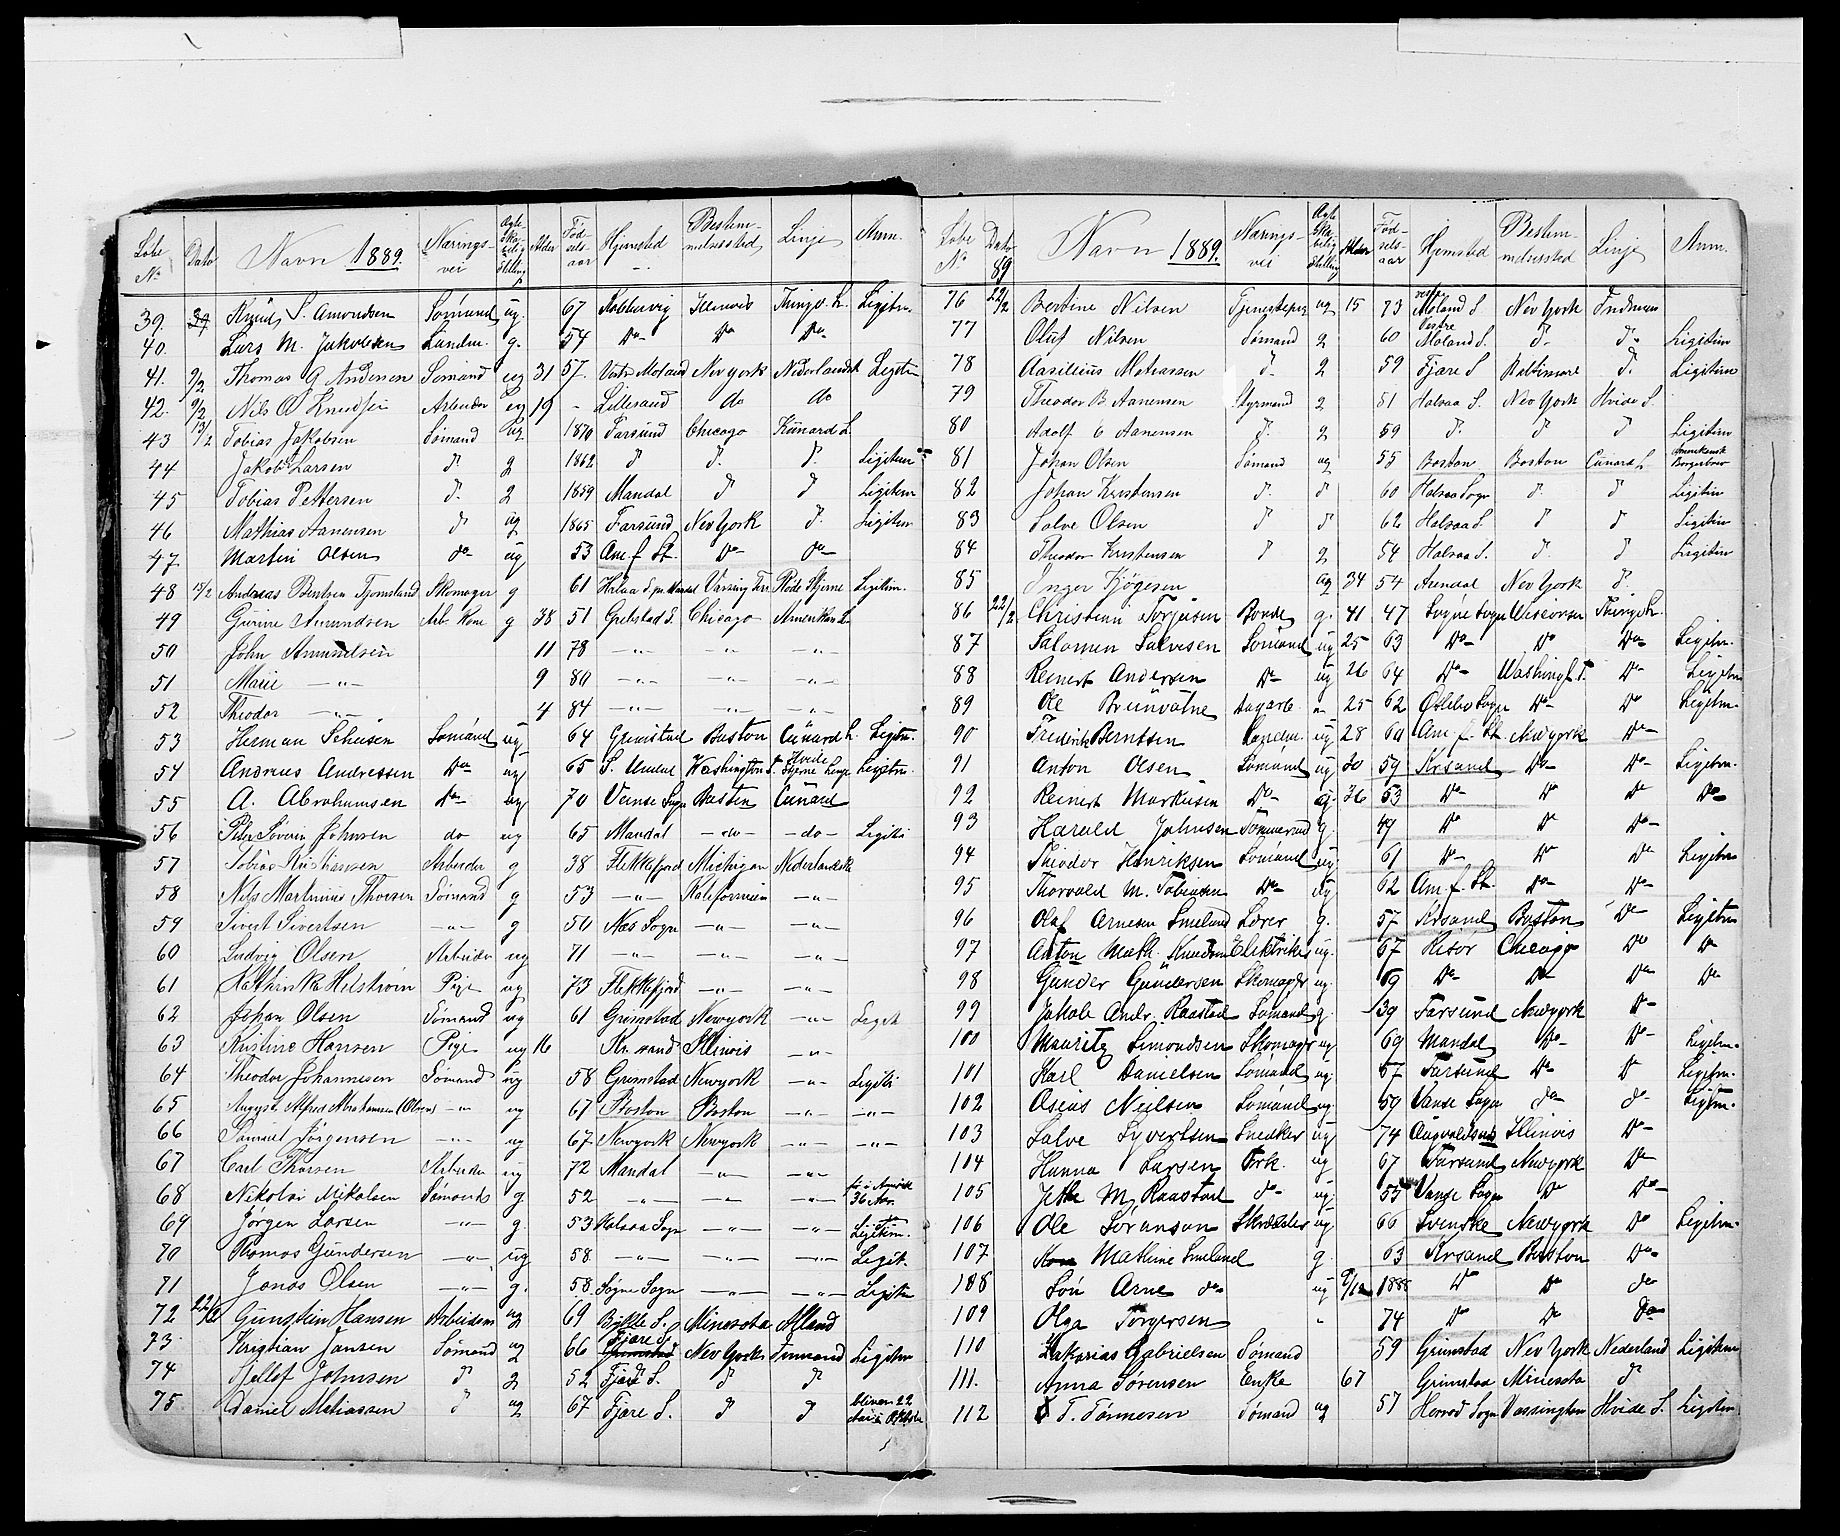 Løbe No Dato Navn 1889. Nærings-vei Ægteskabelig Stilling Alder Fødselsaar Hjemsted Bestemmelsessted Linje Anm.
39. Knud S. Amundsen Sømand ug. 67 Illinois Thingv. L. Legitm.
40. Lars M. Jakobsen Landm. g. 54 Do Do Do
41. 9/2 Thomas G Andersen Sømand ug 31 57. Vestr Moland Nev york Nederlandsk Legitm
42. 9/2 Nils O Knudsen Arbeider ug 19 - Lillesand do do
43 13/2 Tobias Jakobsen Sømand ug 1870 Farsund Chicago Kunard L.
44 Jakob Larsen d. g 1862 d d. d. Legitem
45 Tobias Pettersen d. g 1859 Mandal d d Legitem
46 Mathias Aanensen d ug 1865 Farsund Nev York d. Legitem
47 Martin Olsen do ug 53 Am. f. St. Do do
48 15/2 Andreas Berntsen Fjomsland Skomager g 61 Halsaa S. pr. Mandal Vassing Terr. Røde Stjerne Legitim.
49 Gurine Amundsen Arb. Kone g 38 51 Grebstad S. Chicago Amerikan L
50 John Amundsen 11 78 -"- -"- -"-
51 Marie -"- 9 80 -"- -"- -"-
52 Theodor -"- 4 84 -"- -"- -"-
53 Herman Sømand ug 64 Grimstad Boston Cunard L. Legitm.
54 Andreas Andressen Do ug 65 S. Undal Washington T. Hvide Stjerne Linje Legitm.
55 A. Abrahamsen Do ug 70 Vanse Sogn Boston Cunard
56 Peter Severin Johnsen do ug 65 Mandal -do- -do- Legiti
57 Tobias Kristiansen Arbeider g 38 Flekkefjord Michigan Nederlandsk
58 Nils Martinius Thorsen Sømand g 53 -"- Kalifornien -"-
59 Sivert Sivertsen -"- g 50 Næs Sogn -"- -"-
60 Ludvig Olsen Arbeider ug 71 -"- -"- -"-
61 Kathinka Helstrøm Pige ug 73 Flekkefjord -"- -"-
62 Johan Olsen Sømand ug 61 Grimstad Newyork -"- Legit
63 Kristine Hansen Pige ug 16 Kr. sand Illinois -"-
64 Theodor Johannesen Sømand ug 58 Grimstad Newyork -"- Legiti
65 August Alfred Abrahamsen (Olsen) -"- ug 67 Boston Boston -"- -"-
66 Samuel Jørgensen -"- ug 67. Newyork Newyork -"- -"-
67 Carl Thorsen Arbeider ug 72 Mandal -"- -"-
68 Nikolai Nikolaisen Sømand g 52 -"- -"- -"- i Amerik 36 Aar.
69 Jørgen Larsen -"- g. 53 Halsaa Sogn -"- -"- Legitim.
70 Thomas Gundersen -"- ug 58. -"- -"- -"- Legit.
71 Jonas Olsen -"- g. 58. Søgne Sogn -"- -"- Legiti
72 22/2 Hansen Arbeider ug 69 Bykle S. Minesota Alland
73 Kristian Jansen Sømand ug 66 Fjære S. Nev York Legitim
74 Johnsen d g 52 Fjære S. d d
75 Daniel Matiassen d ug 67 Fjære S. d d bliven 22
Løbe No Dato 89 Navn 1889. Nærings-vei Ægteskabelig Stilling Alder Fødselsaar Hjemsted Bestemmelsessted Linje Anm.
76 22/2 Bertine Nilsen Tjenestepige ug 15 73 Moland S. Nev York
77 Oluf Nilsen Sømand g 60 Vestre Moland S. d. d. Legitim
78 Aasilius Matiassen d. g 59 Fjære S Baltimore d. Legitim
79 Theodor B Aanensen Styrmand g 51 Halsaa S. Nev York Hvide S.
80 Adolf Aanensen d. g 59 d. d d Legitim
81 Johan Olsen Sømand ug 55 Boston Boston Cunard L Amerikansk Borgerbrev
82 Johan Kristensen d. d 60 Halsaa Sogn d. d Legitim
83 Salve Olsen d d 62 Halsaa S. d d Legitim
84 Theodor Kristensen d g 54 Halsaa S. d. d Legitim
85 Inger ug 34 54 Arendal Nev York d.
86 22/2 Christian Torjusen Bonde g. 41 47 Søgne Sogn Thingv L.
87 Salomon Salvesen Sømand ug 25 63 Do Do Do Legitm.
88 Reinert Andersen Do ug 26 64 Do Washingt. T. Do Legitm
89 Ole Brunvatne Dagarb. " 25 62 Øslebø Sogn Do Do Legitm.
90 Frederik Berntsen Landm. ug 28 60 Am. f. St. Newyork Do
91 Anton Olsen Sømand ug 30 59 Krsand Do Do Legitm
92 Reinert Markusen Do g. 36 53 Do Do Do Do
93 Harald Johnsen Tømmermd g. 49 Do Do Do
94 Theodor Henriksen Sømand ug 61 Do Do Do Legitm
95 Thorvald M. Tobiassen Do ug 62 Am. f. St. Do Do
96 Olaf Arnesen Smeland Lærer g. 57 Krsand Boston Do Legitm
97 Anton Math. Knudsen Elektriker ug. 67 Risør Chicago Do Do
98 Gunder Gundersen Skomager ug. 69 Do Do Do Do
99 Jakob Andr. Raastad Sømand g. 39 Farsund Newyork Do
100 Mauritz Simondsen Skomager ug 69 Mandal Do Do Legitm.
101 Karl Danielsen Sømand ug 67 Farsund Do D Legitm.
102 Osius Neilsen Sømand ug. 59 Vanse Sogn do do Legitm.
103 Salve Syvertsen Snedker ug 74 Illinois Do
104 Hanna Larsen Frk. ug 67 Farsund Newyork Do
105 M. Raastad do ug 55 Vanse Sogn Do Do
106 Ole Sørensen Skrædder ug 66 Svenske Newyork Do Legitm.
107. Mathine Smeland g. 63 Krsand Boston Do
108 Søn Arne do ug 1888 Do Do do
109 Olga Torgersen " 74 Do Do Do
110 Zakarias Gabrielsen Sømand 59 Grimstad Nev York Nederland Legitim
111. Anna Sørensen Enke 67 Grimstad Minesota d
112 T. Tønnesen Sømand ug 57 Sogn Vassington Hvide S. Legitim